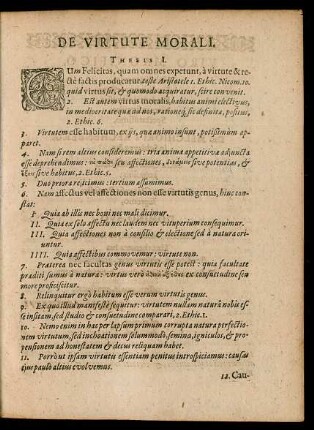 DE VIRTUTE MORALI.
THESIS I.
CUm Felicitas, quam omnes expetunt, à virtute & re-
ctè factis producatur teste Aristotele 1. Ethic. Nicom. 10.
quid virtus sit, & quomodo acquiratur, scire convenit.
2. Est autem virtus moralis, habitus animi electivus,
in mediocritate quæ ad nos, rationeq; sic definita, positus,
2. Ethic. 6.
3. Virtutem esse habitum, ex ijs, quæ animo insunt, potissimùm ap-
paret.
4. Nam si rem altius consideremus: tria anima appetitiva adjuncta
esse deprehendimus: τὰ πάθη seu affectiones, δυνάμεις sive potentias, &
ἕξεις sive habitus, 2. Ethic. 5.
5. Duo priora rejicimus: tertium assumimus.
6. Nam affectus vel affectiones non esse virtutis genus, hinc con-
stat:
I. Quia ab illis nec boni nec mali dicimur.
II. Quia ex solo affectu nec laudem nec vituperium consequimur.
III. Quia affectiones non à consilio & electione sed à natura ori-
untur.
IIII. Quia affectibus commovemur: virtute non.
7. Præterea nec facultas genus virtutis esse potest: quia facultate
præditi sumus à natura: virtus verò ex consuetudine seu
more proficiscitur.
8. Relinquitur ergò habitum esse verum virtutis genus.
9. Ex quo illud manifestè sequitur: virtutem nullam natura nobis es-
se insitam sed studio & consuetudine comparari, 2. Ethic. 1.
10. Nemo enim in hac per lapsum primum corrupta natura perfectio-
nem virtutum, sed inchoationem solummodo, semina, igniculos, & pro-
pensionem ad honestatem & decus reliquam habet.
11. Porrò ut ipsam virtutis essentiam penitus introspiciamus: causas
ejus paulò altius evolvemus.
12. Cau-